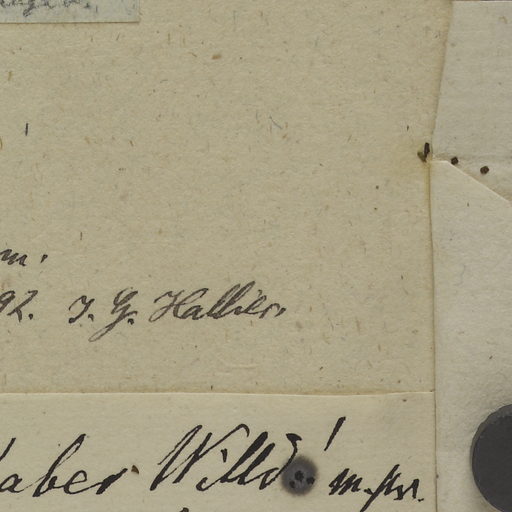 m.
92. J. G. Hallier.
aber Willd.! m. pr.